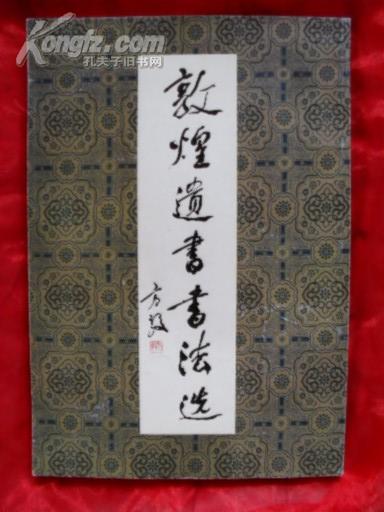 Kongfz.com
孔夫子旧书网
敦煌遺書书法选
方毅